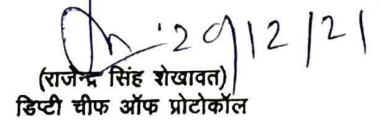 29/12/21
(राजेन्द्र सिंह शेखावत)
डिप्टी चीफ ऑफ प्रोटोकॉल